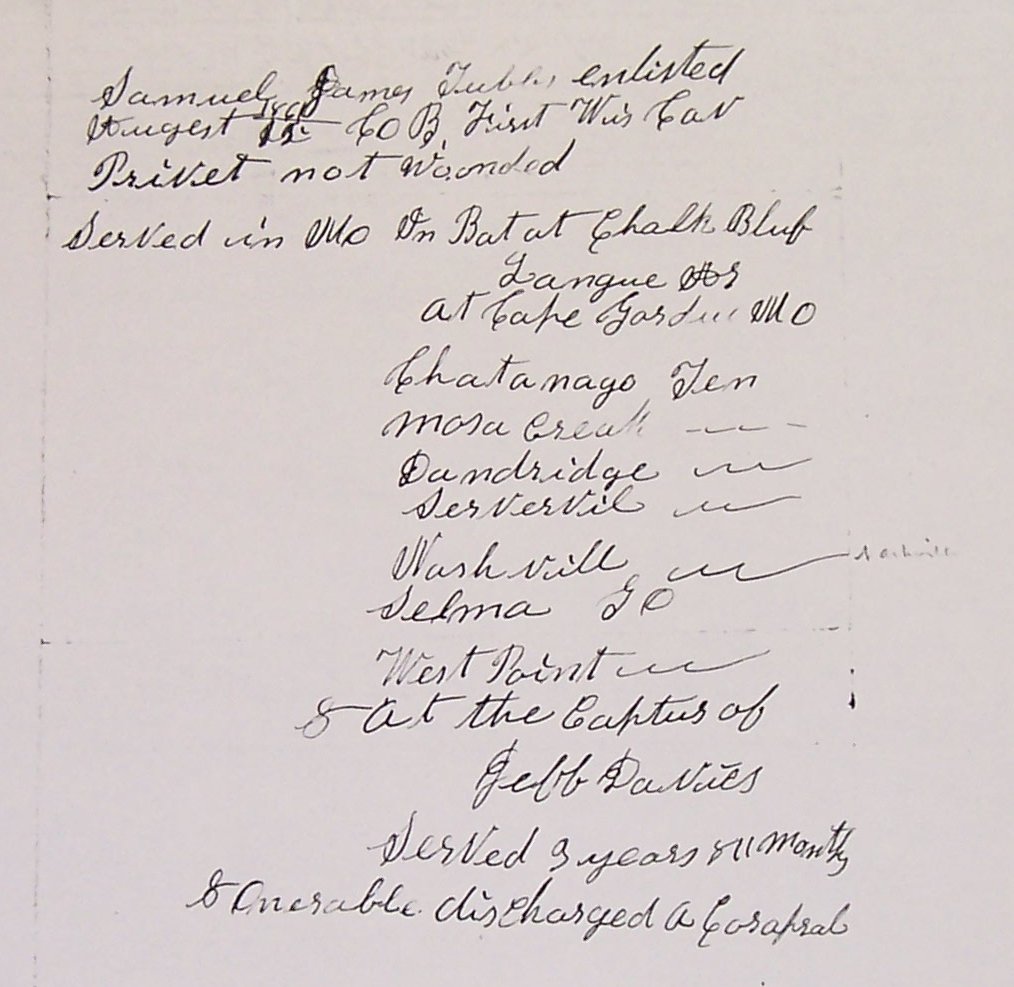 Samuel James Tubbs enlisted
Augest 1861 CO B, First Wis Cav
Privet not Woonded
Served in MO In Bat at Chalk Bluf
Langue
at Cape Gardeu MO
Chatanago Ten
Mosa Creak — - –
Dandridge 〃
Servervil 〃
Nashvill 〃 Nashville
Selma GO
West Point 〃
& At the Captur of
Jeff Davies
Served 3 years & 11 months
& Onerable discharged A Corapral